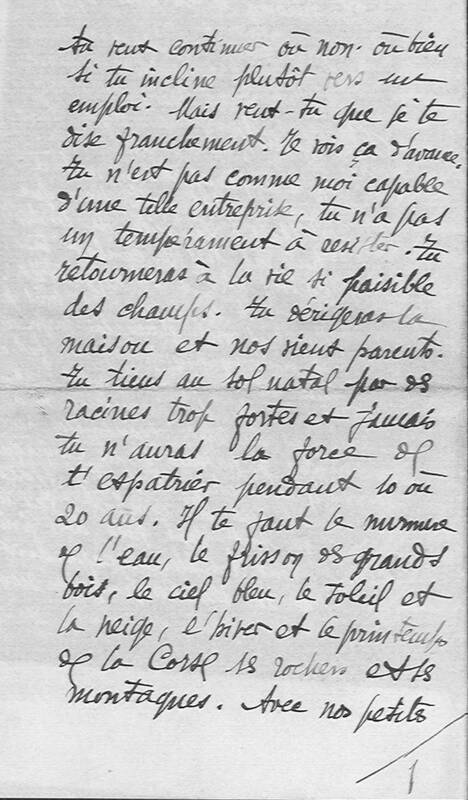 tu veut continuer où non. où bien
si tu incline plutôt vers un
emploi. Mais veut-tu que je te
dise franchement. Je vois ça d'avance.
tu n'est pas comme moi capable
d'une telle entreprise, tu n'a pas
un tempérament à resister. Tu
retourneras à la vie si paisible
des champs. Tu dérigeras la
maison et nos vieux parents.
tu tiens au sol natal par des
racines trop fortes et jamais
tu n'auras la force de
t'espatrier pendant 10 où
20 ans. Il te faut le murmure
de l'eau, le frisson des grands
bois, le ciel bleu, le soleil et
la neige, l'hiver et le printemps
de la Corse ses rochers et ses
montagues. Avec nos petits